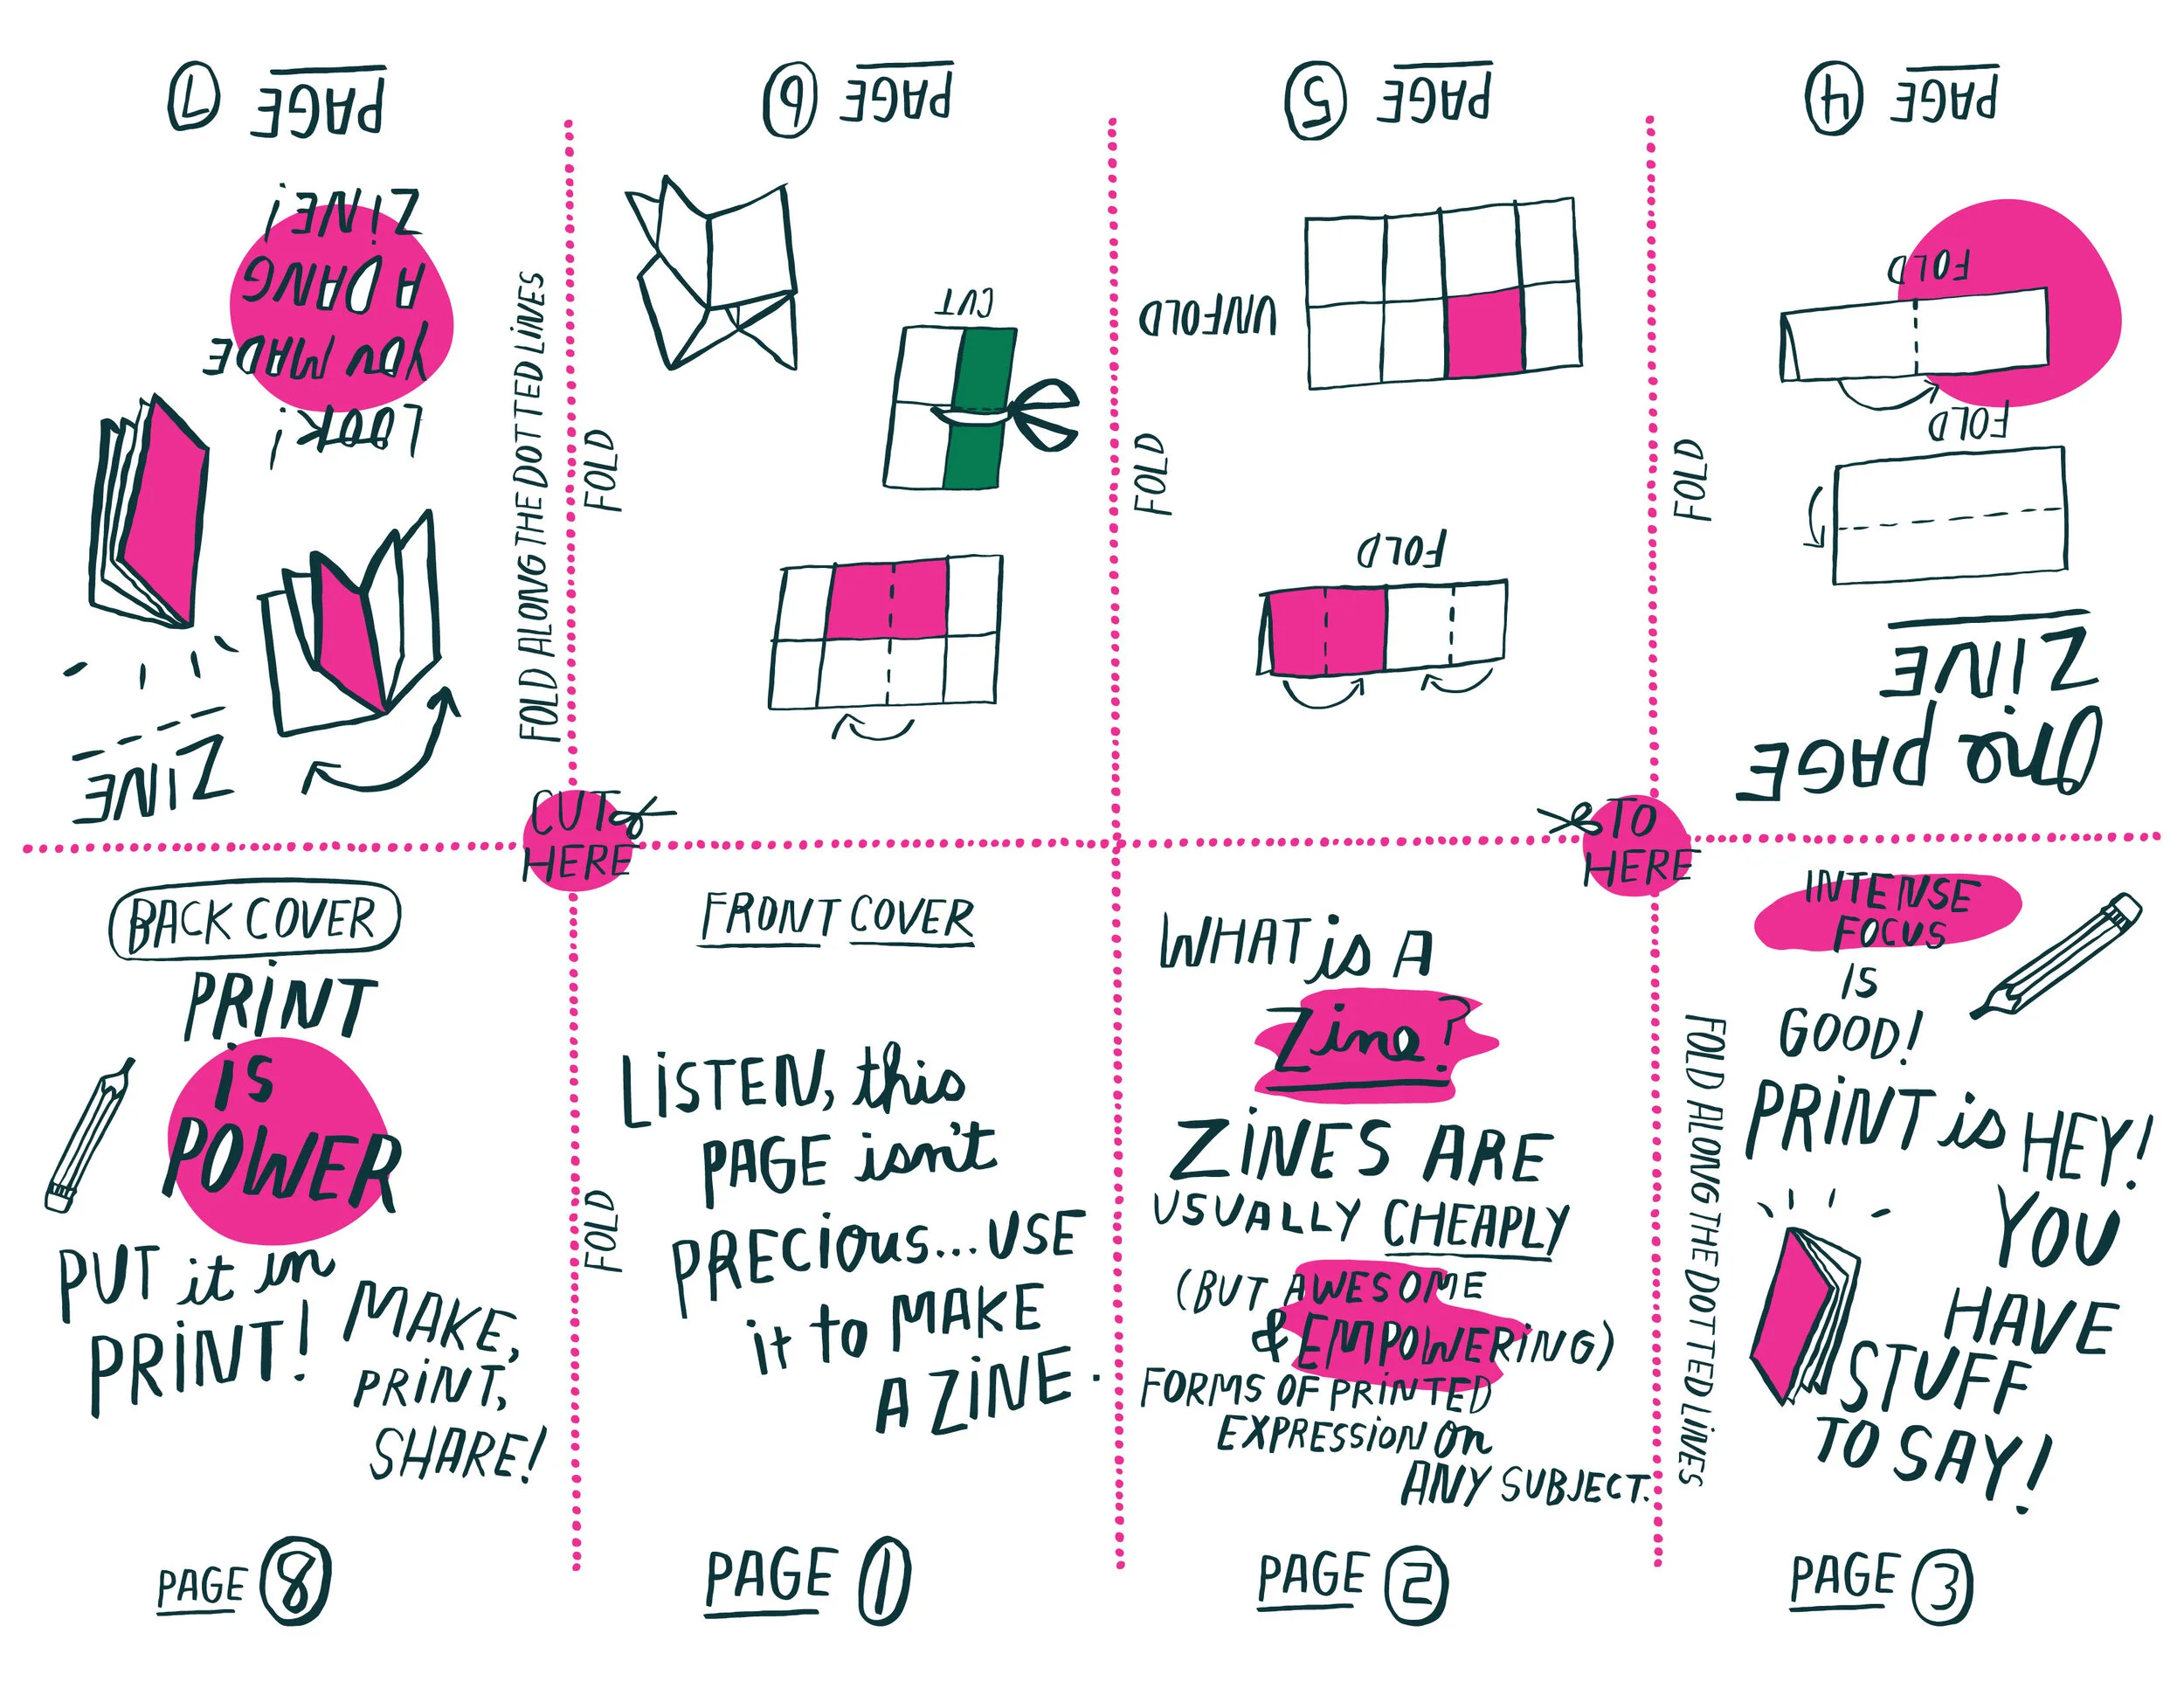 FRONT COVER
LISTEN, this
PAGE isn't
PRECIOUS... USE
it to MAKE
A ZINE.
PAGE 1
WHAT is A
Zine?
ZINES ARE
USUALLY CHEAPLY
(BUT AWESOME
& EMPOWERING)
FORMS OF PRINTED
EXPRESSION ON
ANY SUBJECT.
PAGE 2
INTENSE
FOCUS
IS
GOOD!
PRINT is HEY!
YOU
HAVE
STUFF
TO SAY!
PAGE 3
FOLD ALONG THE DOTTED LINES
One PAGE
ZINE
FOLD
FOLD
PAGE 4
FOLD
FOLD
UNFOLD
PAGE 5
FOLD
CUT
PAGE 6
FOLD
ZINE
LOOK!
YOU MADE
A DANG
ZINE!
PAGE 7
FOLD ALONG THE DOTTED LINES
CUT
HERE
TO
HERE
BACK COVER
PRINT
is
POWER
PUT it in
PRINT!
MAKE,
PRINT,
SHARE!
PAGE 8
FOLD